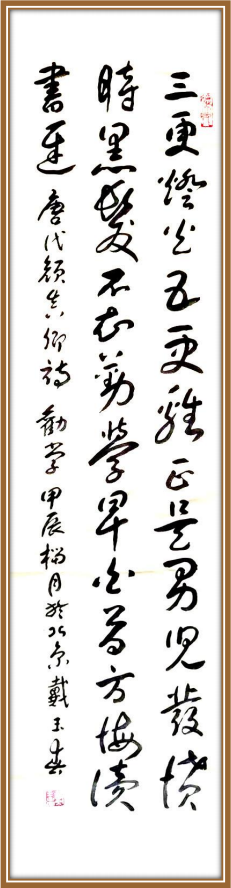 三更燈火五更雞正是男兒發憤
時黑髮不知勤學早白首方悔讀
書遲 唐代顏真卿詩 勸學 甲辰榴月於北京 戴玉